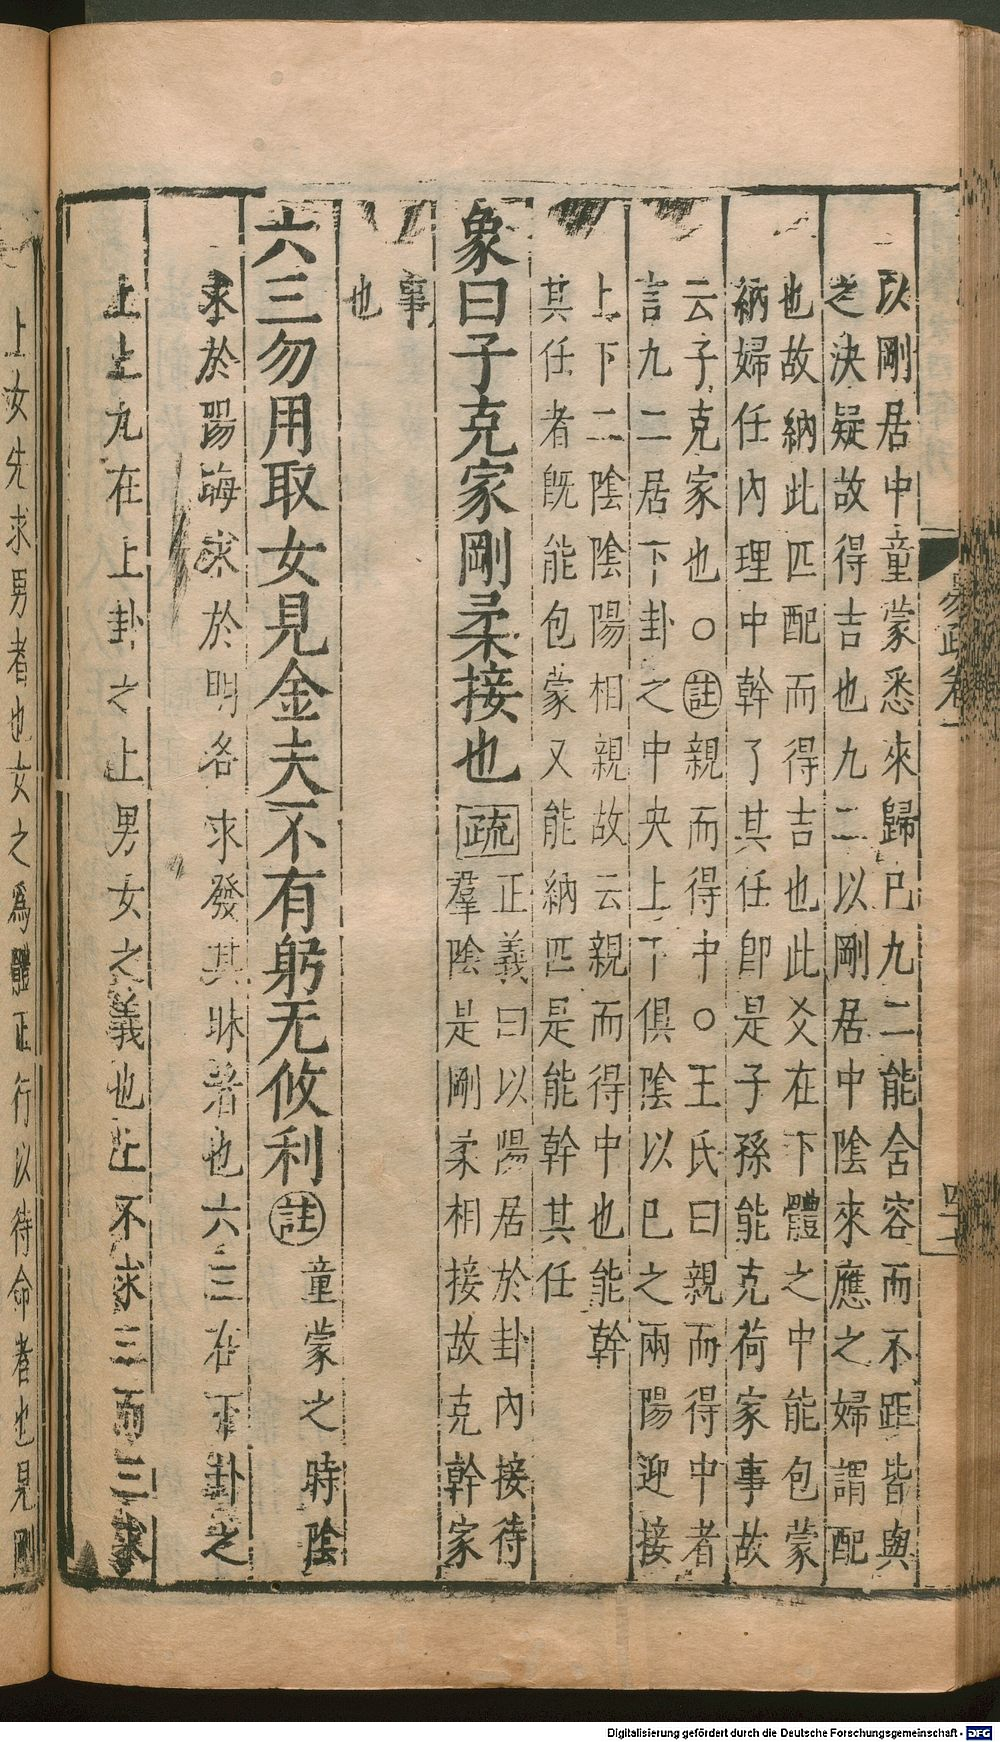 以剛居中童蒙悉來歸已九二能舍容而不距皆與
之決疑故得吉也九二以剛居中陰來應之婦謂配
也故納此匹配而得吉也此爻在下體之中能包蒙
納婦任內理中幹了其任即是子孫能克荷家事故
云子克家也○註親而得中○王氏曰親而得中者
言九二居下卦之中央上下俱陰以已之兩陽迎接
上下二陰陰陽相親故云親而得中也能幹
其任者旣能包蒙又能納匹是能幹其任
象曰子克家剛柔接也 疏
正義曰以陽居於卦內接待
羣陰是剛柔相接故克幹家
事
也
六三勿用取女見金夫不有躬无攸利 註
童蒙之時陰
求於陽晦求於明各求發其昧者也六三在下卦之
上上九在上卦之上男女之義也上不求三而三求
上女先求男者也女之爲體正行以待命者也見剛
易疏卷一
Digitalisierung gefördert durch die Deutsche Forschungsgemeinschaft - DFG